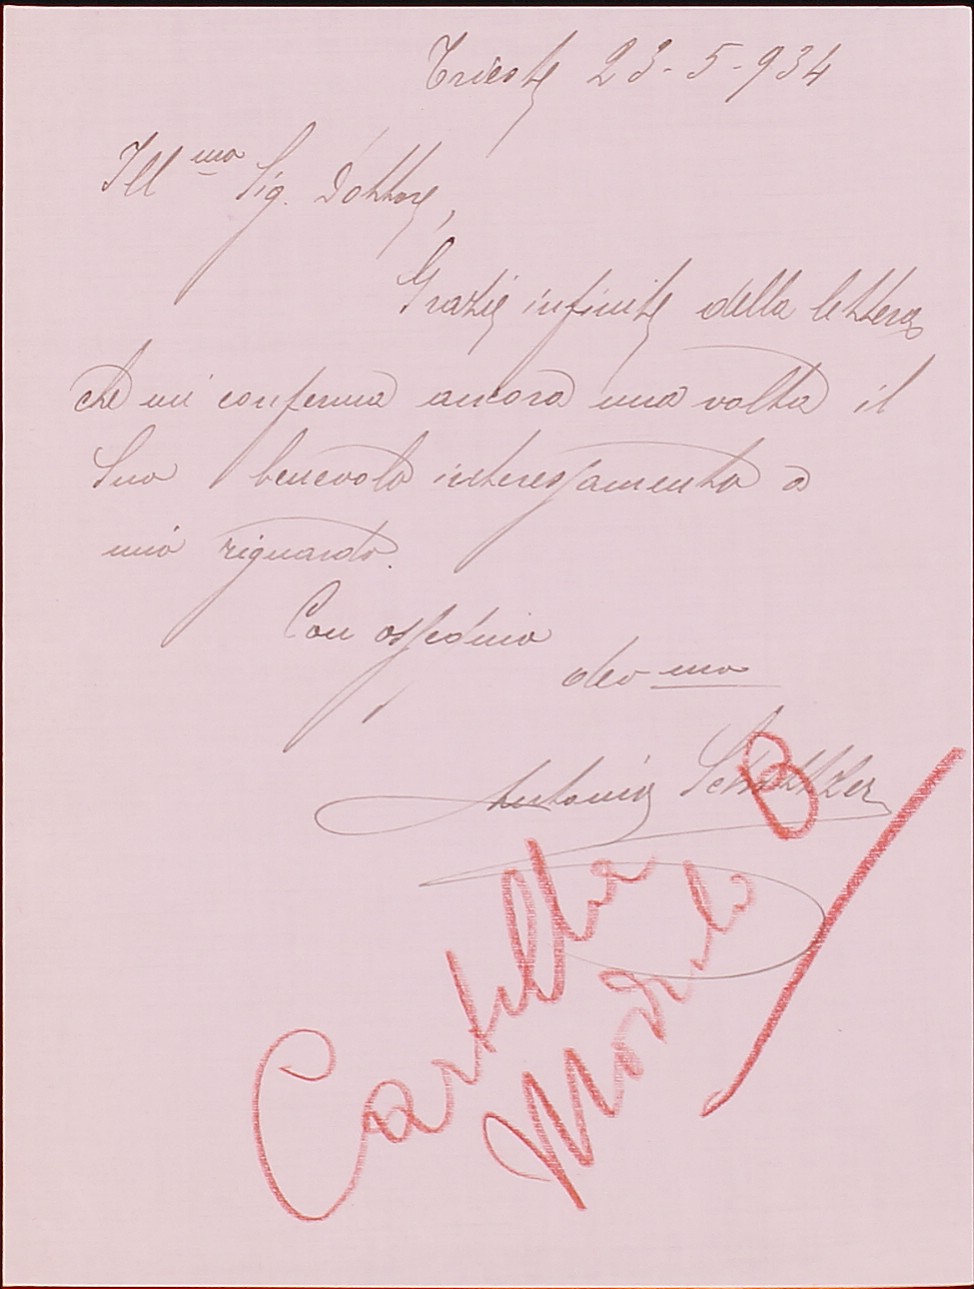 Trieste 23-5-934
Ill mo Sig. Dottore,
Grazie infinite della lettera
che mi conferma ancora una volta il
Suo benevolo interessamento a
mio riguardo.
Con ossequio
dev mo
Antonio
B
Cartella
Modulo